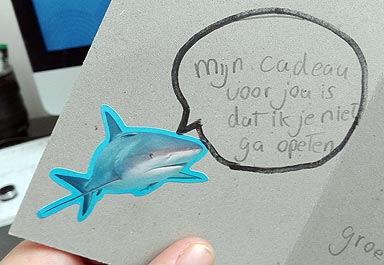 mijn cadeau
voor jou is
dat ik je niet
ga opeten
groe